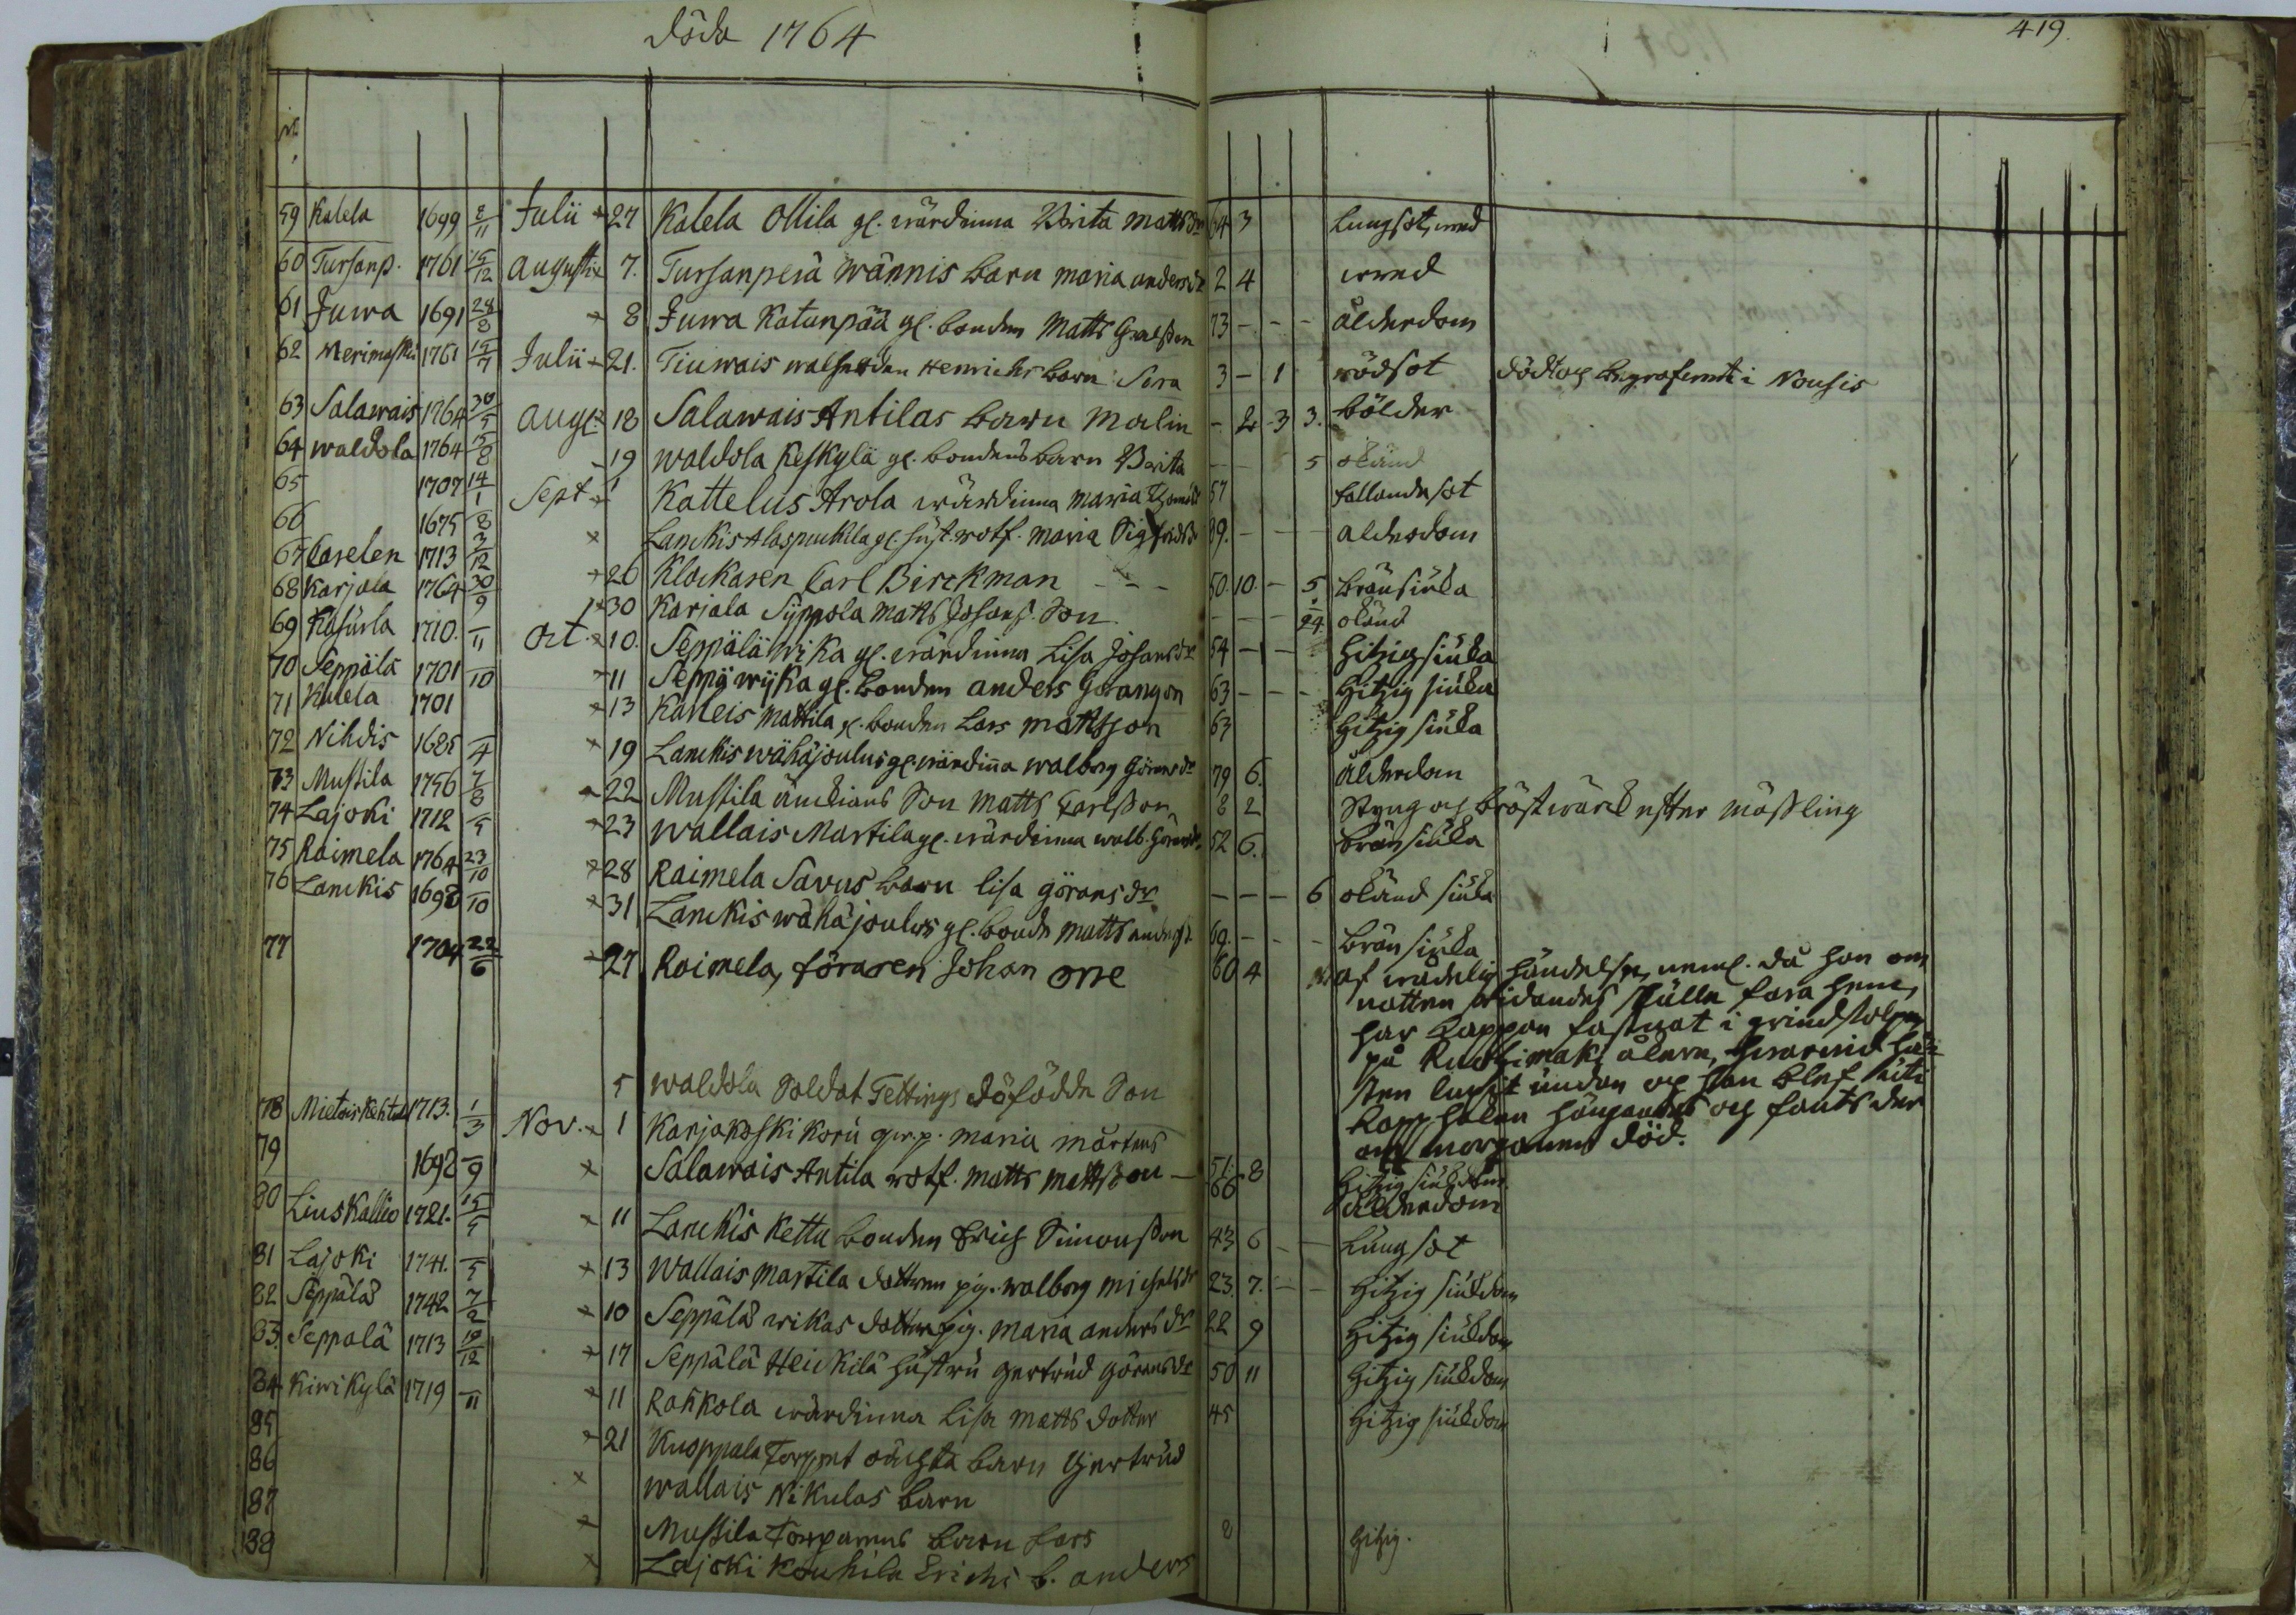 Döda 1764
419.
59 Kalela 1699 8/11 Julii 27 Kalela Ollila gl. wärdinna Brita Matts dr 64 3 Lungsot,
60 Tursanp. 1761 15/12 Augusti 7. Tursanperä Wännis barn Maria anders dr 2 4
61 Juwa 1691 28/8 8 Juwa Katanpää gl. bonden Matts 73 - - - ålderdom
62 1761 15/7 Julii 21. Tiuwais Henrichs barn Sara 3 - 1 rödsot död och begrafwen i Nousis
63 Salawais 1764 30/5 aug: 18 Salawais Antilas barn Malin - 2 3 3. bölder
64 Waldola 1764 15/8 19 Waldola Keskylä gl. bondens barn Brita - - 5 okänd
65 1707 14/1 Sept 1 Kattelus Arola wärdinna Maria 57 fallandesot
66 1675 /8 Lanckis gl. hust. rotf. Maria Sigfrids dr 89. - - - ålderdom
67 Carelen 1713 3/12 26 Klockaren Carl Birckman - - - 50 10 - 5 bränsiuka
68 Karjala 1764 30/9 30 Karjala Syppola Matts Johans. Son - - - 24 okänd
69 1710. /11 Oct. 10. Seppälä Wika gl. wärdinna Lisa Johans dr 54 - - hitzig siuka
70 Seppälä 1701 /10 11 Seppä wijka gl. bonden anders 63 - - - hitzig siuka
71 Kalela 1701 13 Karleis Mattila gl. bonden Lars Mattsson 63 hitzig siuka
72 Nihdis 1685 /4 19 Lanckis Wähäjoulus gl. wärdinna Walborg Görans dr 79 6. ålderdom
73 Mustila 1756 7/8 22 Mustila änckians Son Matts Carlsson 8 2 Styng och bröstwärck efter mässling
74 Lajoki 1712 /5 23 Wallais Martila gl. wärdinna Walb. Görans dr 52 6. bränsiuka
75 Raimela 1764 23/10 28 Raimela Savus barn Lisa Görans dr - - - 6 okänd siuka
76 Lanckis 1695 /10 31 Lanckis Wähäjoulus gl. bonde Matts anders. 69. - - - bränsiuka
77 1704 22/6 27 Raimela, föraren Johan Orre 60 4 af wådelig händelse, neml. då han om
natten ridandes skulle fara hem,
har kappan fastnat i grindstolpen
på åkern, hwarwid hä-
sten lupit undan och han blef uti
hängandes och fants der
om morgonen död.
5 Waldola Soldat Tettings döfödde Son
78 1713. 1/3 Nov. 1 Karjakoski Maria Mårtens 51. 8 hitzig siukdom
79 1698 /9 Salawais Antila rotf. Matts Mattsson - 66 ålderdom
80 Liuskallio 1721. 15/5 11 Lanckis Kettu bonden Erich Simonsson 43 6 - - Lungsot
81 Lajoki 1741. /5 13 Wallais Martila dottren pig. Walborg Michels dr 23. 7. - - hitzig siukdom
82 Seppälä 1742 7/2 10 Seppälä Wikas dotter pig. Maria anders dr 22 9 hitzig siukdom
83. Seppälä 1713 19/12 17 Seppälä Heickilä hustru Gertrud Görans dr 50 11 hitzig siukdom
84 Kiwikylä 1719 /11 11 Rahkola wärdinna Lisa Matts dotter 45 hitzig siukdom
85 21 Kuoppala Torpet barn Gertrud
86 Wallais Nikulas barn
87 Mustila Torparens barn Lars 8 hitzig.
88 Lajoki Kouhila Erichs b. anders